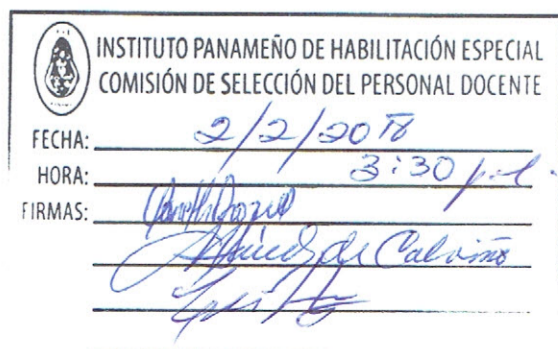 INSTITUTO PANAMEÑO DE HABILITACIÓN ESPECIAL
COMISIÓN DE SELECCIÓN DEL PERSONAL DOCENTE
FECHA: 2/2/2018
HORA: 3:30 p.m.
FIRMAS:
de Calviño